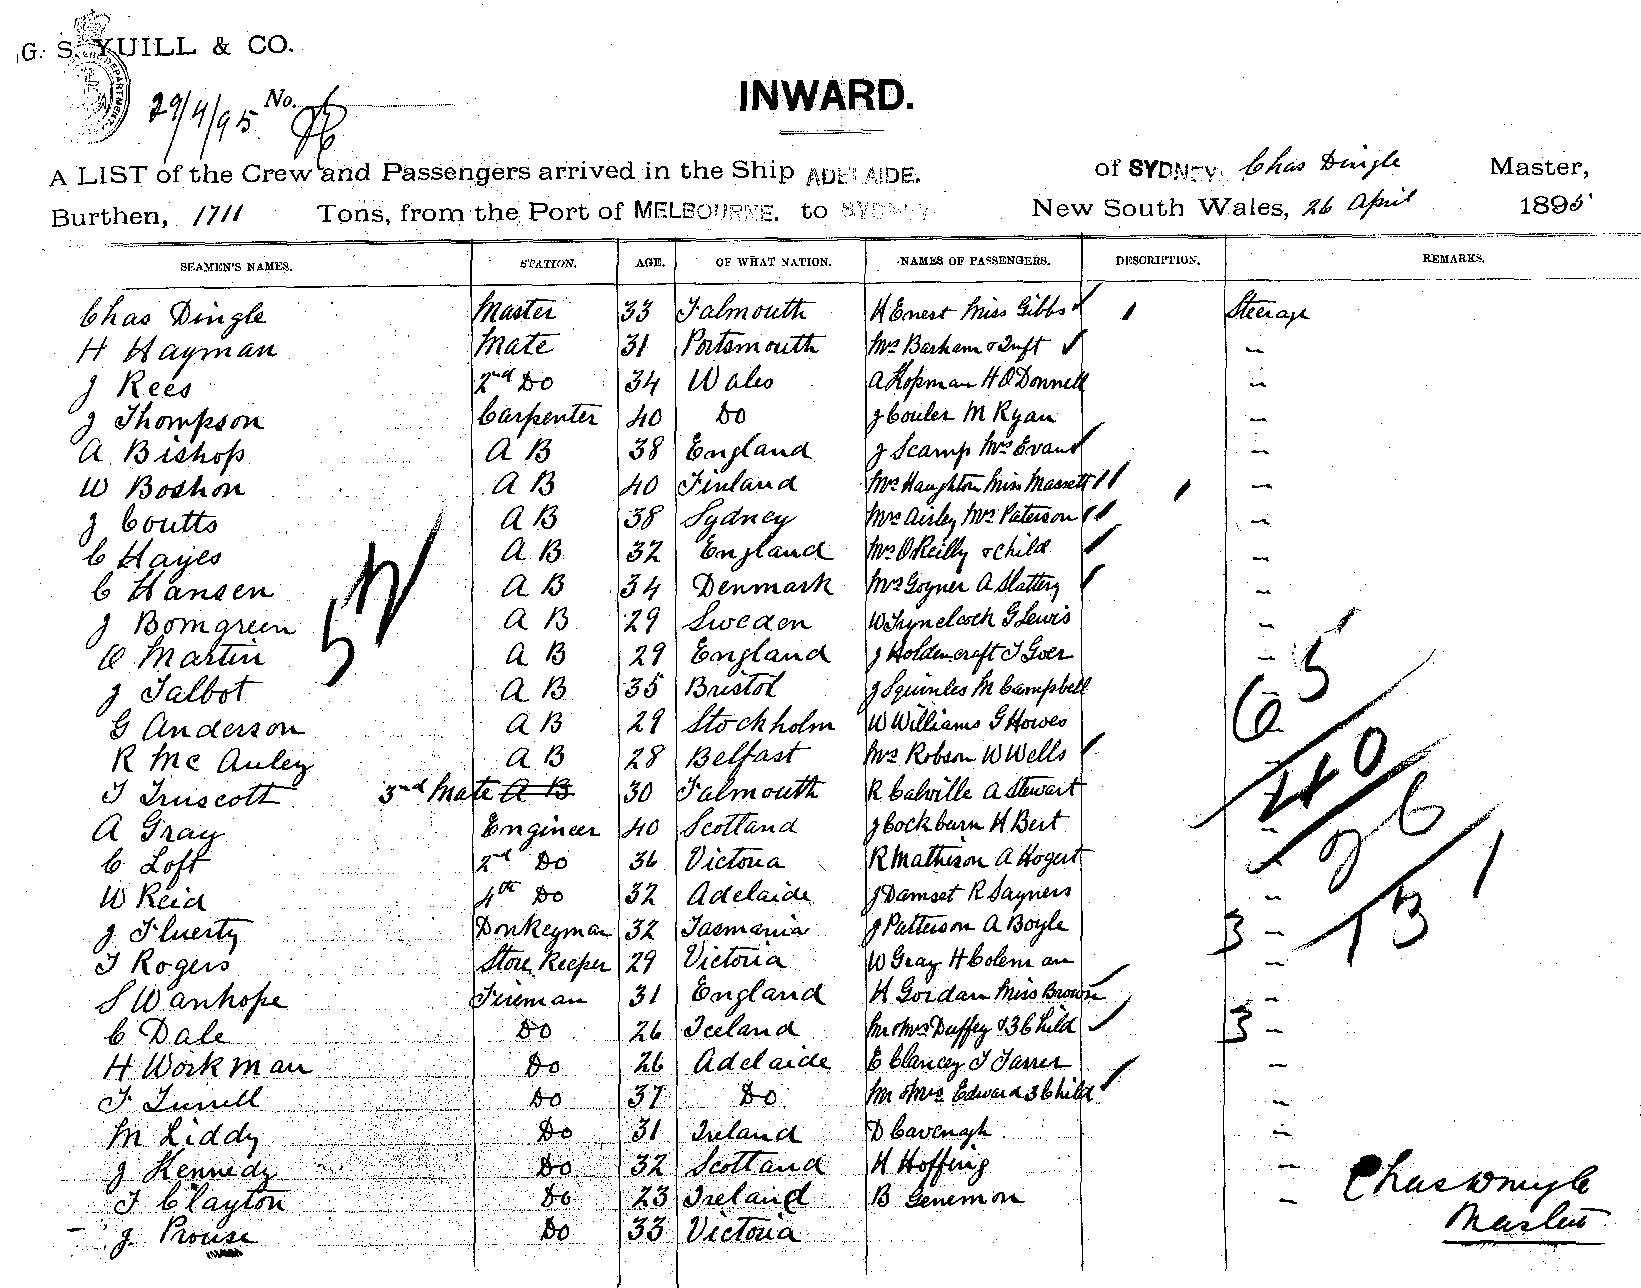 G. S. YUILL & CO.
DEPARTMENT
29/4/95 No.
INWARD.
A LIST of the Crew and Passengers arrived in the Ship ADELAIDE. of SYDNEY, Chas Dingle Master,
Burthen, 1711 Tons, from the Port of MELBOURNE. to SYDNEY New South Wales, 26 April 1895
SEAMEN'S NAMES. STATION. AGE. OF WHAT NATION. NAMES OF PASSENGERS. DESCRIPTION. REMARKS.
Chas Dingle Master 33 Falmouth H Ernest Miss Gibbs Steerage
H Hayman Mate 31 Portsmouth Mrs Barham & Inft "
J Rees 2nd Do 34 Wales A Kopman H O'Donnell "
J Thompson Carpenter 40 Do J Couler M Ryan "
A Bishop A B 38 England J Scamp Mrs Evans "
W Boshon A B 40 Finland Mrs Haughton Miss Massett "
J Coutts A B 38 Sydney Mrs Airley Mrs Paterson "
C Hayes A B 32 England Mrs O'Reilly & child "
C Hansen A B 34 Denmark Mrs Goyner A Slattery "
J Bomgreen A B 29 Sweden G Lewis "
O Martin A B 29 England J Holdencraft T Goer "
J Talbot A B 35 Bristol J Squirrles M Campbell
G Anderson A B 29 Stockholm W Williams G Howes
R McAuley A B 28 Belfast Mrs Robson W Wells
T Truscott 3rd Mate A B 30 Falmouth R Calville A Stewart
A Gray Engineer 40 Scotland J Cockburn H Bert "
C Loft 2nd Do 36 Victoria R Mathison A Hogert
W Reid 4th Do 32 Adelaide J Damset R Sayners "
J Fluerty Donkeyman 32 Tasmania J Patterson A Boyle 3 "
T Rogers Store Keeper 29 Victoria W Gray H Coleman "
S Wanhope Fireman 31 England H Gordan Miss Brown "
C Dale Do 26 Iceland Mr & Mrs Duffey & 3 Child 3 "
H Workman Do 26 Adelaide E Clancey T Farrer "
F Turrell Do 37 Do Mr & Mrs Edward 3 Child "
M Liddy Do 31 Ireland D Cavenagh "
J Kennedy Do 32 Scotland H Hoffing "
T Clayton Do 23 Ireland B Genemon "
J Prouse Do 33 Victoria
Chas Dingle
Master